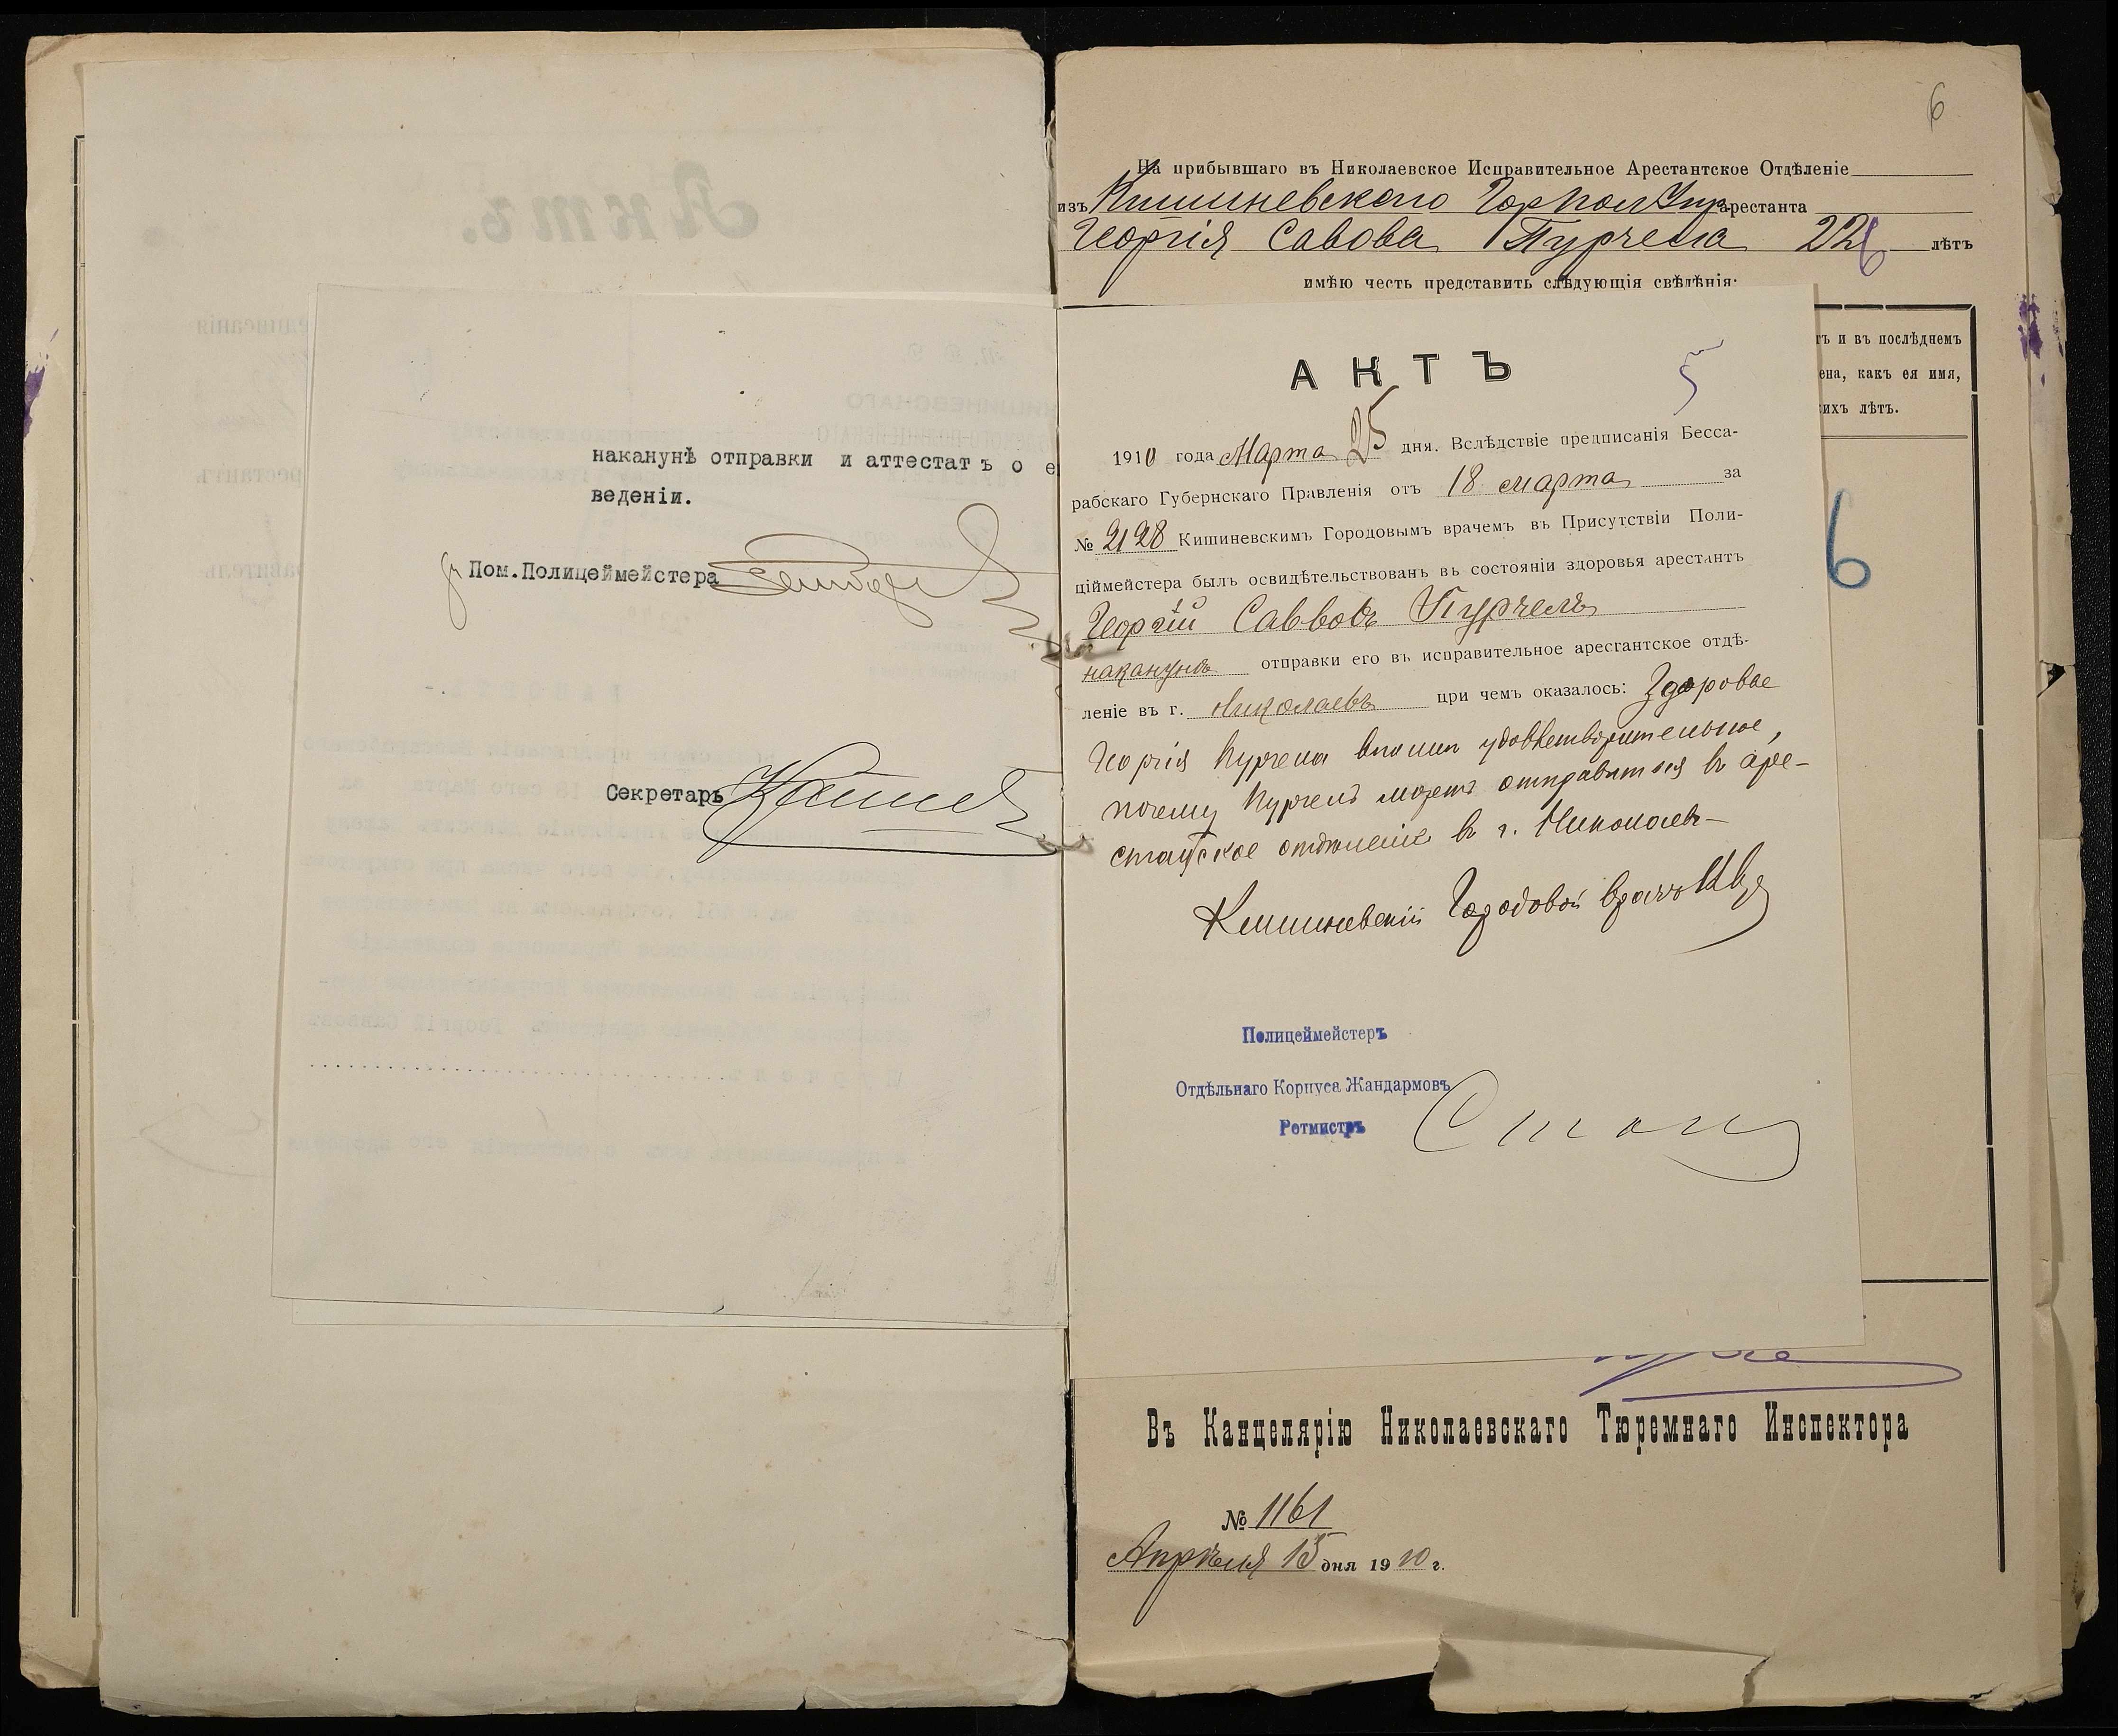 наканунѣ отправки и аттестатъ о е
веденіи.
Пом.Полицеймейстера
Секретарь
6
На прибывшаго въ Николаевское Исправительное Арестантское Отдѣленіе
изъ Кишиневскаго Гор Пол Упр арестанта
Георгія Савова Пурчела 22 лѣтъ
имѣю честь представить слѣдующія свѣдѣнія:
тъ и въ послѣднемъ
ена, какъ ея имя,
ихъ лѣтъ.
АКТЪ
5
1910 года Марта 25 дня. Вслѣдствіе предписанія Бесса-
рабскаго Губернскаго Правленія отъ 18 марта за
№ 2128 Кишиневскимъ Городовымъ врачемъ въ Присутствіи Поли-
ціймейстера былъ освидѣтельствованъ въ состояніи здоровья арестантъ
Георгій Саввовъ Пурчелъ
наканунѣ отправки его въ исправительное арестантское отдѣ-
леніе въ г. Николаевъ при чемъ оказалось: Здоровье
Георгія Пурчела вполнѣ удовлетворительное,
почему Пурчелъ можетъ отправиться въ аре-
стантское отдѣленіе въ г. Николаевъ
Кишиневскій Городовой врачъ
6
Полицеймейстеръ
Отдѣльнаго Корпуса Жандармовъ
Ротмистръ
Въ Канцелярію Николаевскаго Тюремнаго Инспектора
№ 1161
Апрѣля 15 дня 1910 г.